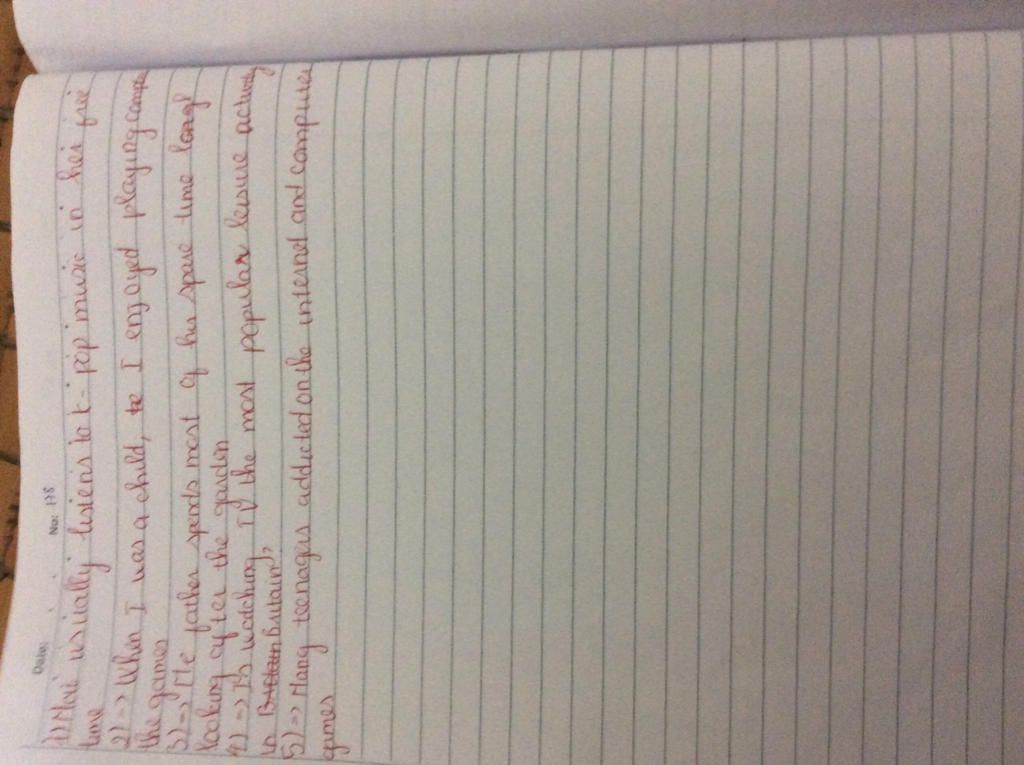 Date: No: 178
1) Mai usually listens to k-pop music in her free
time
2) => When I was a child, to I enjoyed playing compute
the games
3) => Me father spends most of his spare time
looking after the gardin
4) => Is watching TV the most popular leisure activity
in Britain?
5) => Many teenagers addicted on the internet and computer
games